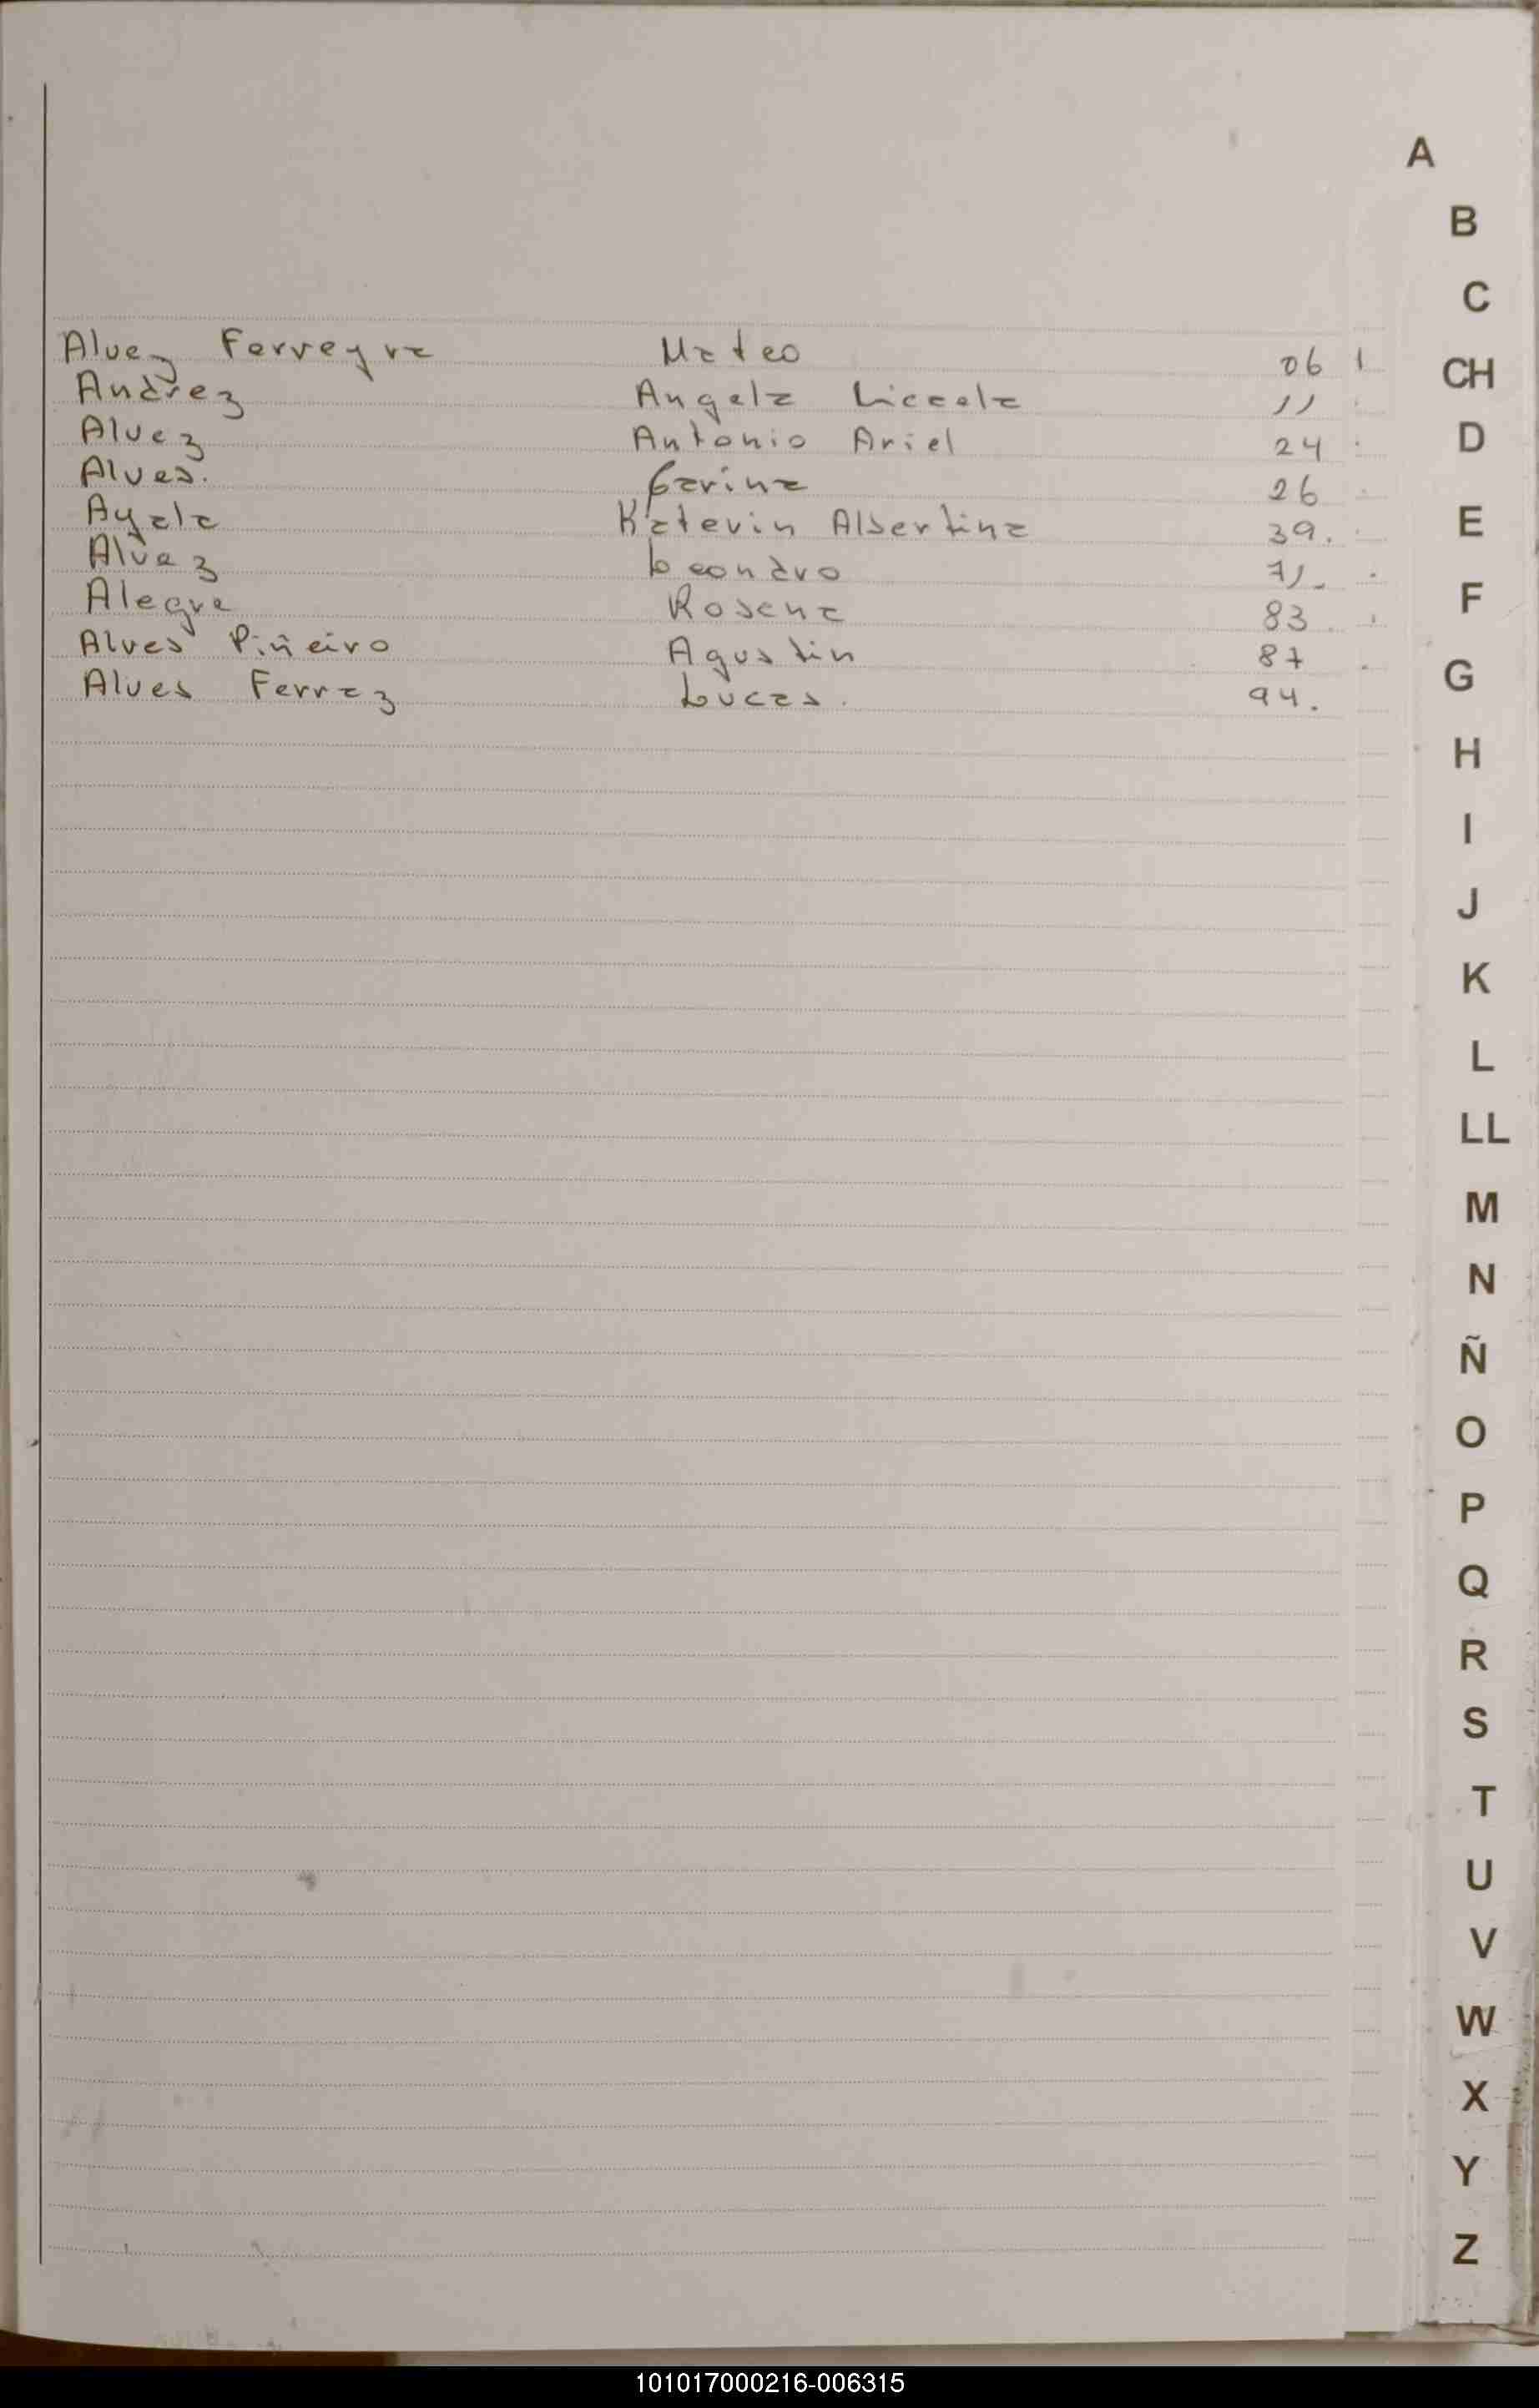 A
B
C
Alvez Ferreyra Mateo 06
CH
Andrez Angela Liccela 11
D
Alvez Antonio Ariel 24
Alves. Carina 26
E
Ayala Katerin Albertina 39.
Alvez Leandro 71.
F
Alegre Rosana 83
Alves Piñeiro Agustin 87
G
Alves Ferraz Lucas. 94.
H
I
J
K
L
LL
M
N
Ñ
O
P
Q
R
S
T
U
V
W
X
Y
Z
101017000216-006315